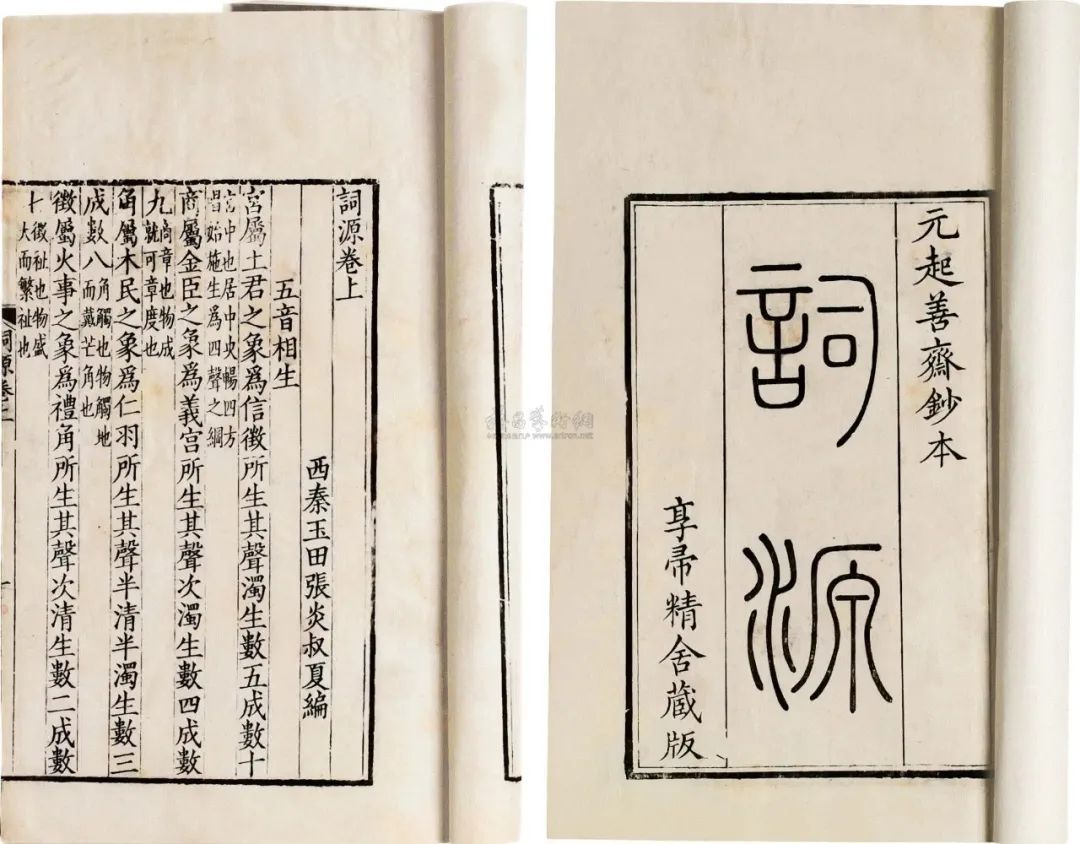 元起善齋鈔本
詞源
享帚精舍藏版
詞源卷上
西秦玉田張炎叔夏編
五音相生
宮屬土君之象爲信徵所生其聲濁生數五成數十
宮中也居中央暢四方
唱始施生爲四聲之綱
商屬金臣之象爲義宮所生其聲次濁生數四成數
九商章也物成
就可章度也
角屬木民之象爲仁羽所生其聲半清半濁生數三
成數八角觸也物觸地
而戴芒角也
徵屬火事之象爲禮角所生其聲次清生數二成數
徵祉也物盛
大而繁祉也
詞源卷上
www.artron.net